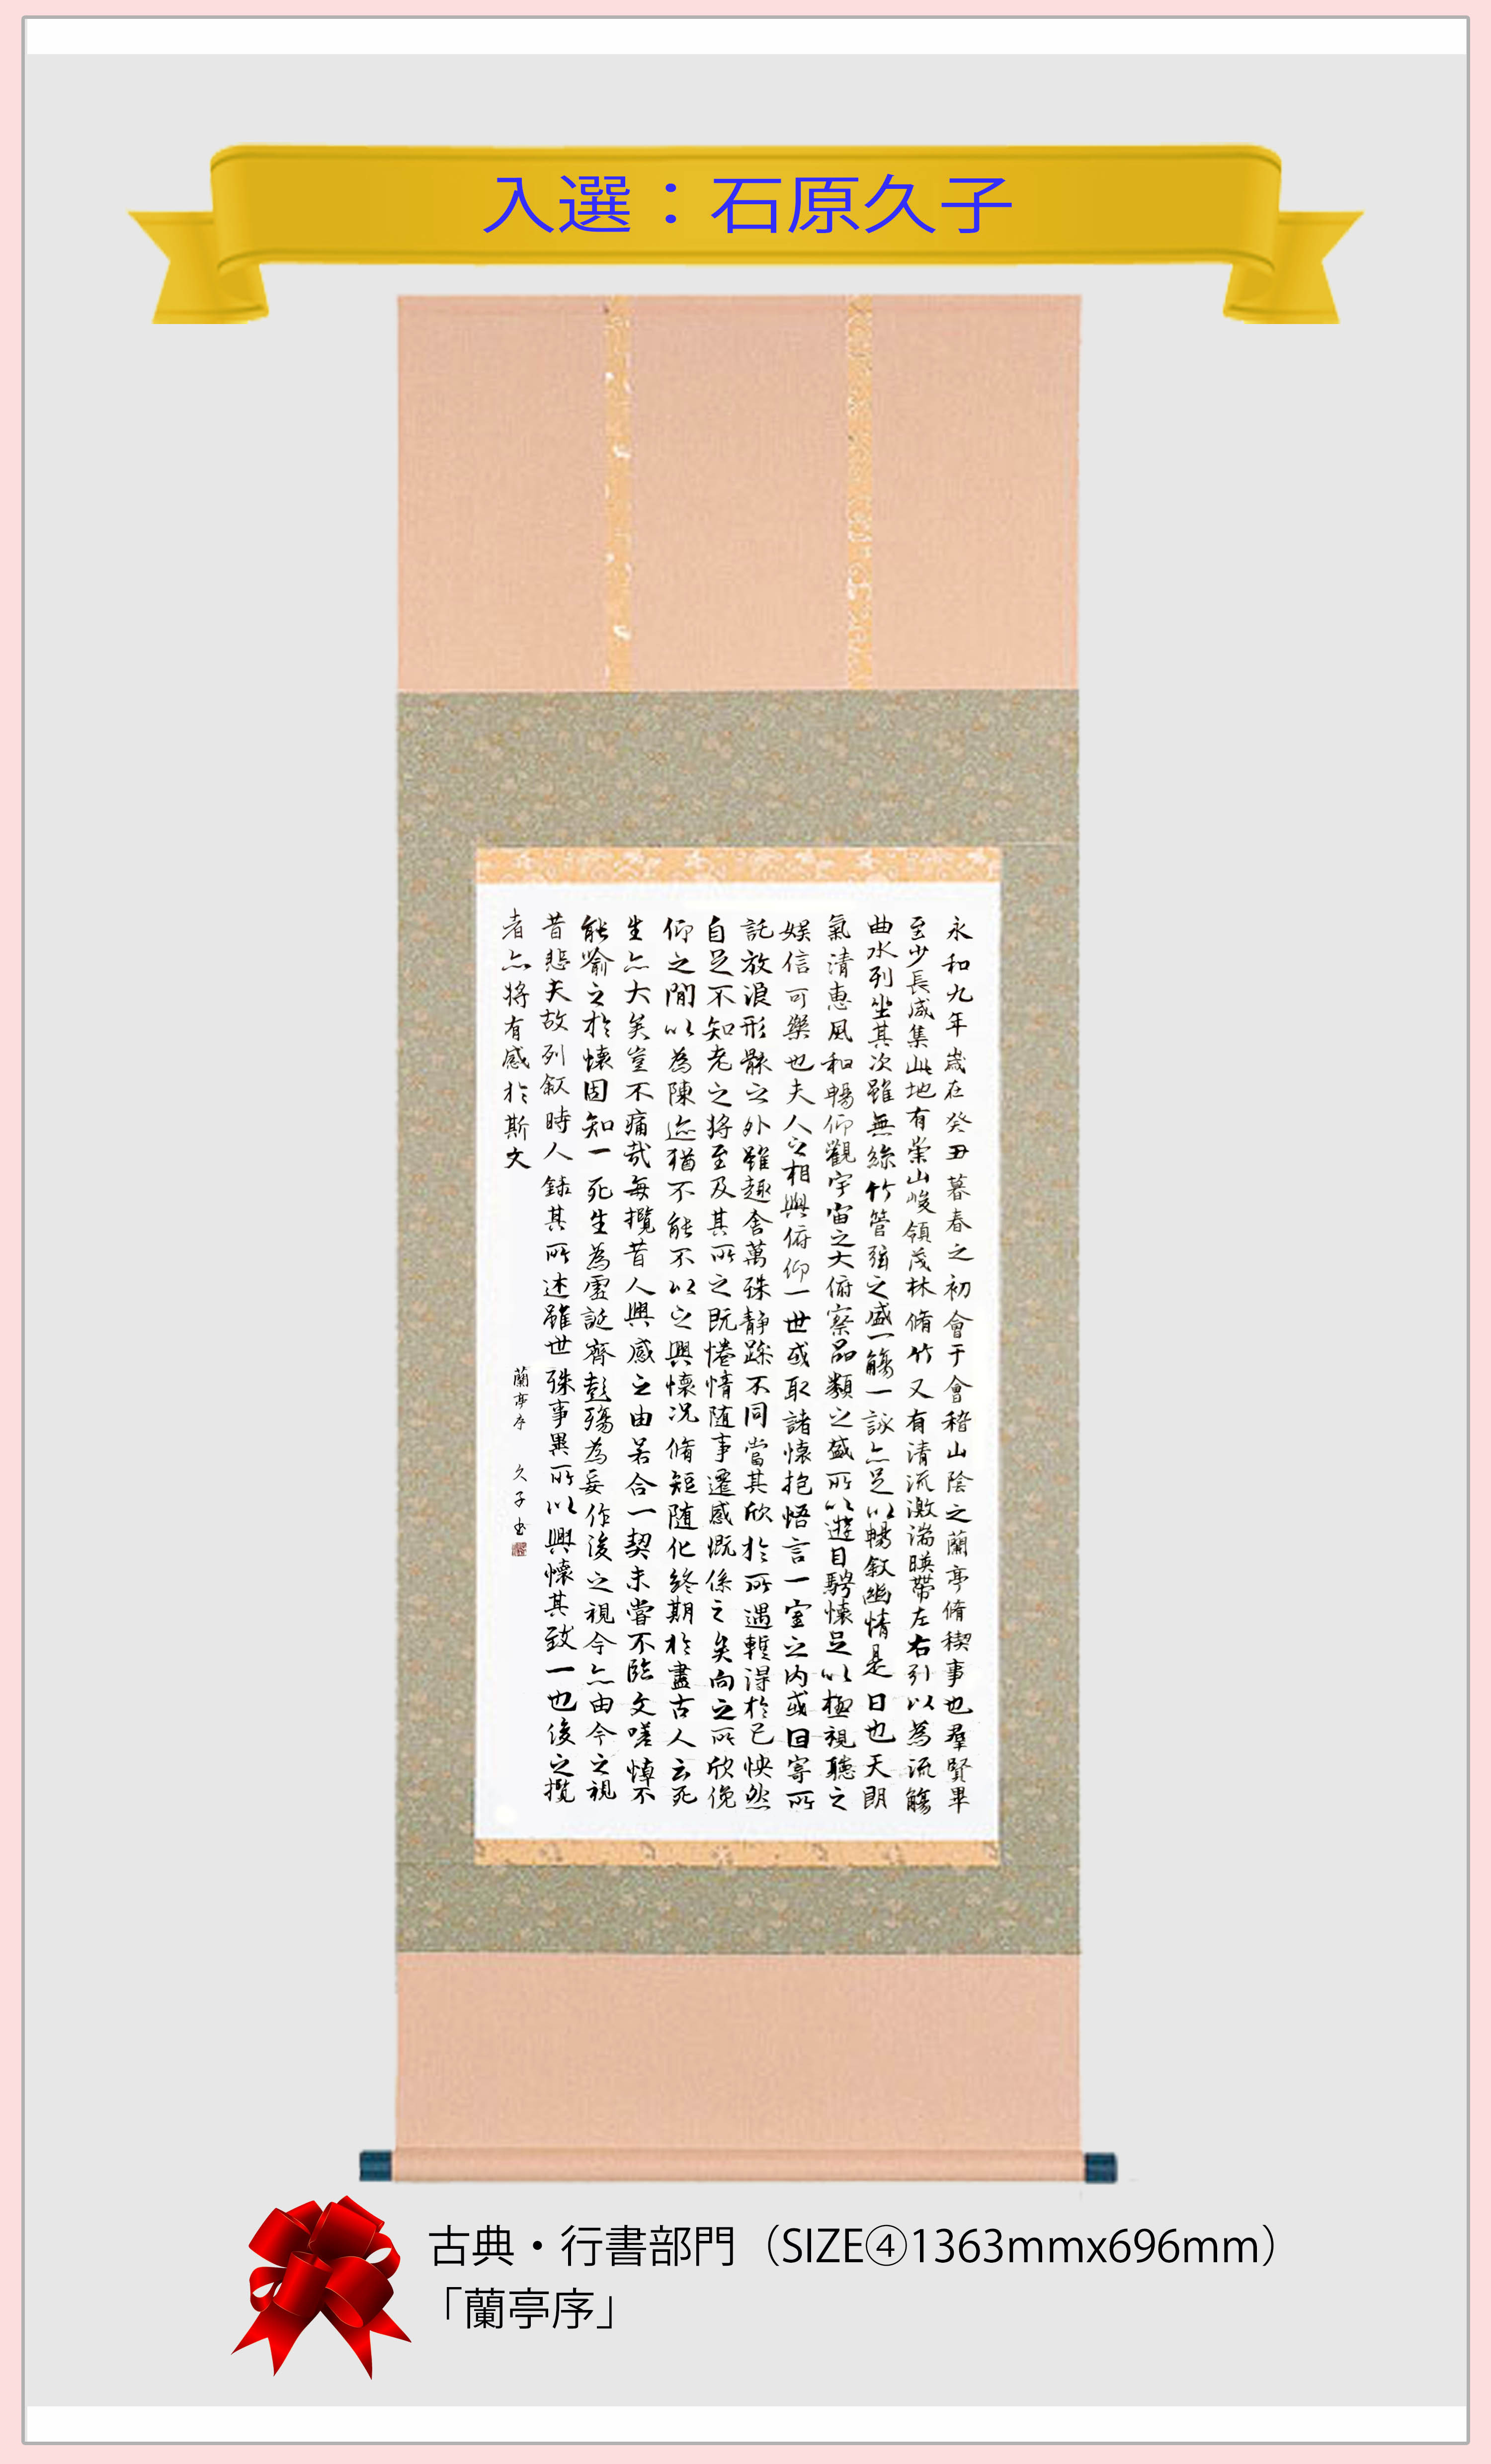 入選：石原久子
永和九年歳在癸丑暮春之初會于會稽山陰之蘭亭脩稧事也羣賢畢
至少長咸集此地有崇山峻領茂林脩竹又有清流激湍暎帶左右引以為流觴
曲水列坐其次雖無絲竹管弦之盛一觴一詠亦足以暢叙幽情是日也天朗
氣清恵風和暢仰觀宇宙之大俯察品類之盛所以遊目騁懐足以極視聽之
娯信可樂也夫人之相與俯仰一世或取諸懐抱悟言一室之内或因寄所
託放浪形骸之外雖趣舎萬殊静躁不同當其欣於所遇暫得於己怏然
自足不知老之将至及其所之既惓情随事遷感慨係之矣向之所欣俛
仰之閒以為陳迹猶不能不以之興懐況脩短随化終期於盡古人云死
生亦大矣豈不痛哉毎攬昔人興感之由若合一契未嘗不臨文嗟悼不
能喻之於懐固知一死生為虚誕齊彭殤為妄作後之視今亦由今之視
昔悲夫故列叙時人録其所述雖世殊事異所以興懐其致一也後之攬
者亦将有感於斯文
蘭亭序 久子書
古典・行書部門（SIZE④1363mmx696mm）
「蘭亭序」